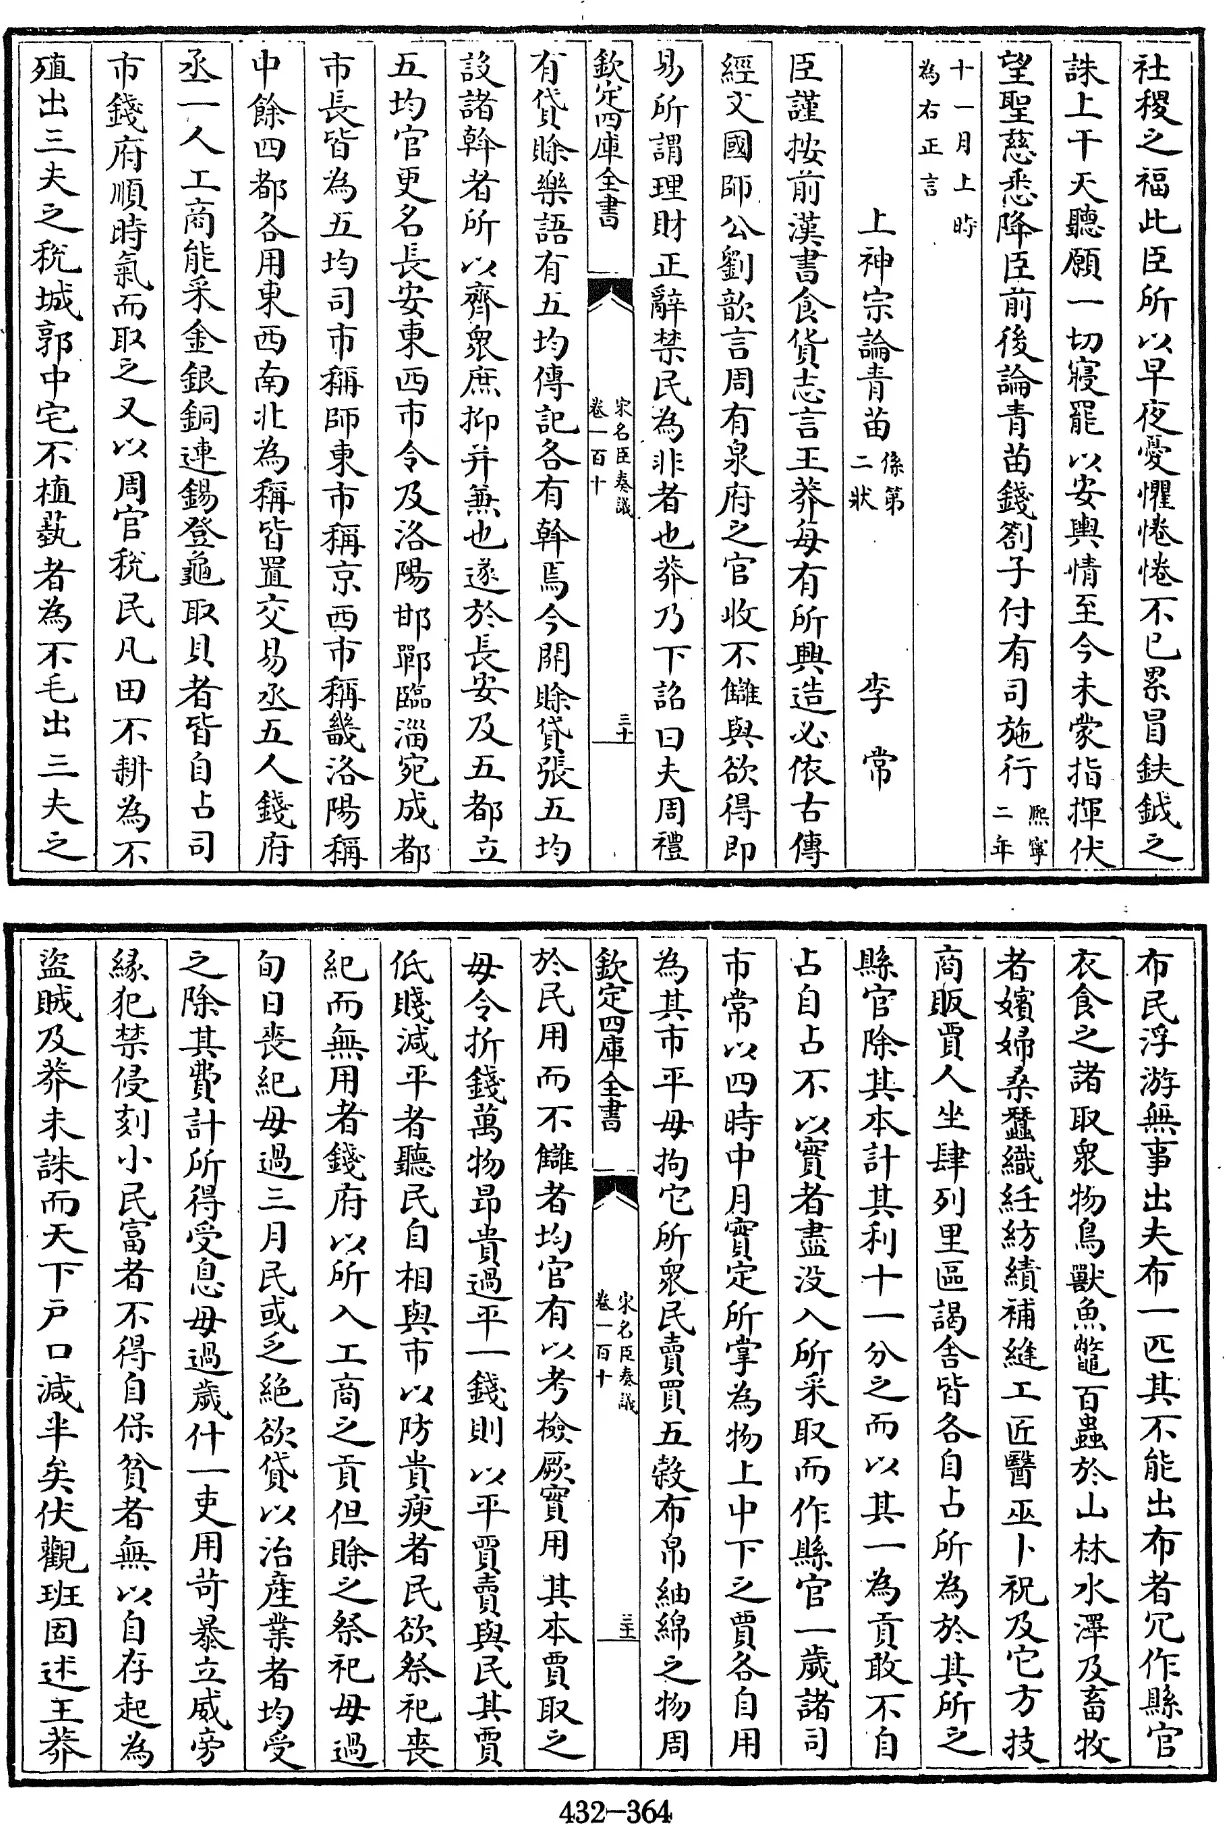 社稷之福此臣所以早夜憂懼惓惓不已累冒鈇鉞之
誅上干天聽願一切寢罷以安輿情至今未蒙指揮伏
望聖慈悉降臣前後論青苗錢劄子付有司施行熙寧二年
十一月上時為右正言
上神宗論青苗係第二狀 李常
臣謹按前漢書食貨志言王莽每有所興造必依古傳
經文國師公劉歆言周有泉府之官收不讎與欲得即
易所謂理財正辭禁民為非者也莽乃下詔曰夫周禮
欽定四庫全書 宋名臣奏議 卷一百十 三十
有貸賖樂語有五均傳記各有斡焉今開賖貸張五均
設諸斡者所以齊衆庶抑并兼也遂於長安及五都立
五均官更名長安東西市令及洛陽邯鄲臨淄宛成都
市長皆為五均司市稱師東市稱京西市稱畿洛陽稱
中餘四都各用東西南北為稱皆置交易丞五人錢府
丞一人工商能采金銀銅連錫登龜取貝者皆自占司
市錢府順時氣而取之又以周官税民凡田不耕為不
殖出三夫之税城郭中宅不植蓺者為不毛出三夫之
布民浮游無事出夫布一匹其不能出布者冗作縣官
衣食之諸取衆物鳥獸魚鼈百蟲於山林水澤及畜牧
者嬪婦桑蠶織紝紡績補縫工匠醫巫卜祝及它方技
商販賈人坐肆列里區謁舍皆各自占所為於其所之
縣官除其本計其利十一分之而以其一為貢敢不自
占自占不以實者盡没入所采取而作縣官一歲諸司
市常以四時中月實定所掌為物上中下之賈各自用
為其市平毋拘它所衆民賣買五穀布帛紬綿之物周
欽定四庫全書 宋名臣奏議 卷一百十 三十一
於民用而不讎者均官有以考檢厥實用其本賈取之
毋令折錢萬物昻貴過平一錢則以平賈賣與民其賈
低賤減平者聽民自相與市以防貴庾者民欲祭祀喪
紀而無用者錢府以所入工商之貢但賖之祭祀毋過
旬日喪紀毋過三月民或乏絶欲貸以治産業者均受
之除其費計所得受息毋過歲什一吏用苛暴立威旁
緣犯禁侵刻小民富者不得自保貧者無以自存起為
盜賊及莽未誅而天下户口減半矣伏觀班固述王莽
432-364